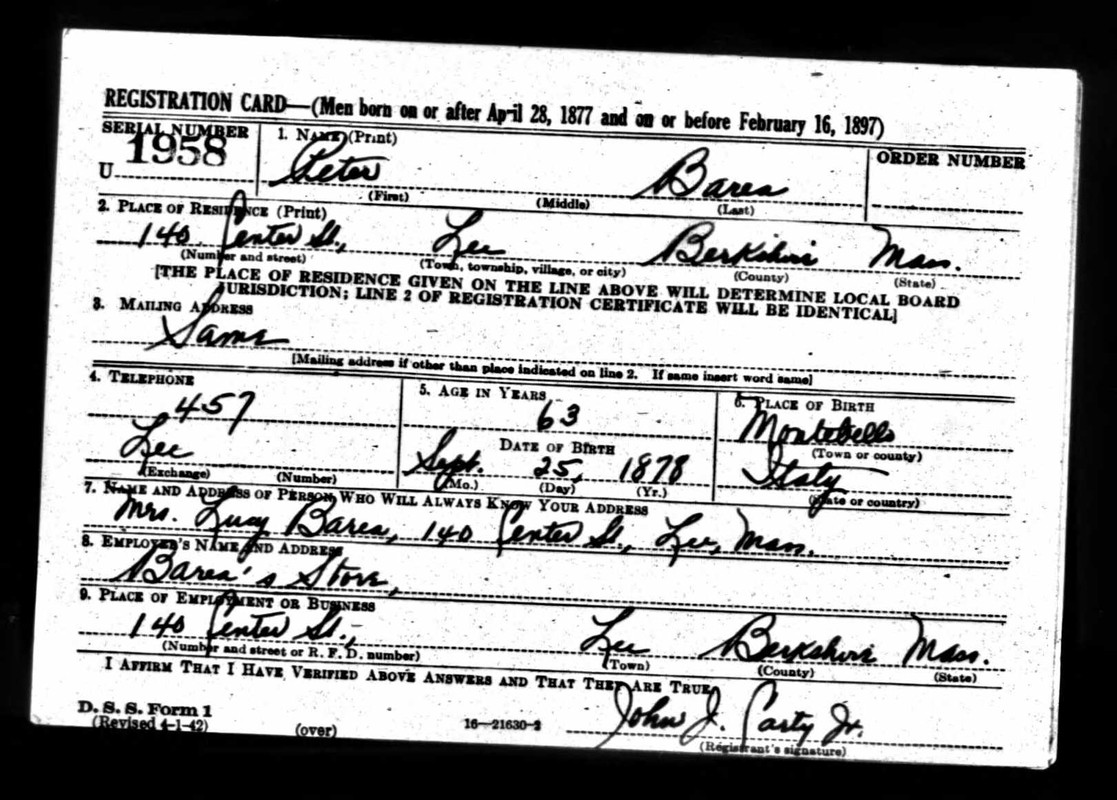 REGISTRATION CARD—(Men born on or after April 28, 1877 and on or before February 16, 1897)
SERIAL NUMBER 1. NAME (Print) ORDER NUMBER
U 1958 Peter Barea
(First) (Middle) (Last)
2. PLACE OF RESIDENCE (Print)
140 Center St., Lee Berkshire Mass.
(Number and street) (Town, township, village, or city) (County) (State)
[THE PLACE OF RESIDENCE GIVEN ON THE LINE ABOVE WILL DETERMINE LOCAL BOARD
JURISDICTION; LINE 2 OF REGISTRATION CERTIFICATE WILL BE IDENTICAL]
3. MAILING ADDRESS
Same
[Mailing address if other than place indicated on line 2. If same insert word same]
4. TELEPHONE 5. AGE IN YEARS 6. PLACE OF BIRTH
457 63 Montebello
DATE OF BIRTH (Town or county)
Lee Sept. 25, 1878 Italy
(Exchange) (Number) (Mo.) (Day) (Yr.) (State or country)
7. NAME AND ADDRESS OF PERSON WHO WILL ALWAYS KNOW YOUR ADDRESS
Mrs. Lucy Barea, 140 Center St., Lee, Mass.
8. EMPLOYER'S NAME AND ADDRESS
Barea's Store,
9. PLACE OF EMPLOYMENT OR BUSINESS
140 Center St., Lee Berkshire Mass.
(Number and street or R. F. D. number) (Town) (County) (State)
I AFFIRM THAT I HAVE VERIFIED ABOVE ANSWERS AND THAT THEY ARE TRUE.
D. S. S. Form 1
(Revised 4-1-42) (over) 16—21630-2 John J. Carty Jr.
(Registrant's signature)